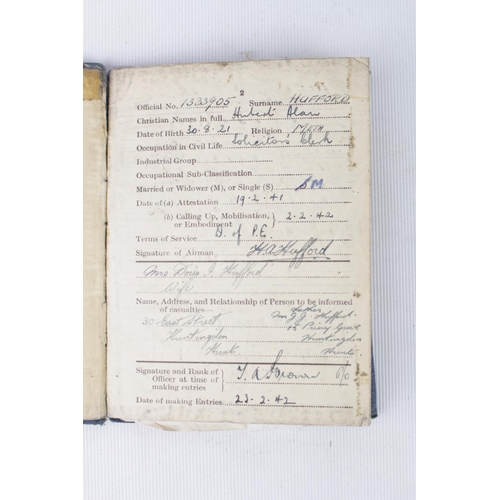 2
Official No. 1323905 Surname HUFFORD
Christian Names in full Hubert Alan
Date of Birth 30.8.21 Religion Meth
Occupation in Civil Life Solicitors Clerk
Industrial Group
Occupational Sub-Classification
Married or Widower (M), or Single (S) S M
Date of (a) Attestation 19.2.41
(b) Calling Up, Mobilisation, or Embodiment } 2.2.42
Terms of Service D. of P.E.
Signature of Airman H A Hufford
Mrs Doris J. Hufford
Wife
Name, Address, and Relationship of Person to be informed
of casualties— Father
30 East Street Hufford
Huntingdon 15 Priory
Hunts Huntingdon
Hunts
Signature and Rank of
Officer at time of
making entries
Date of making Entries 23.2.42